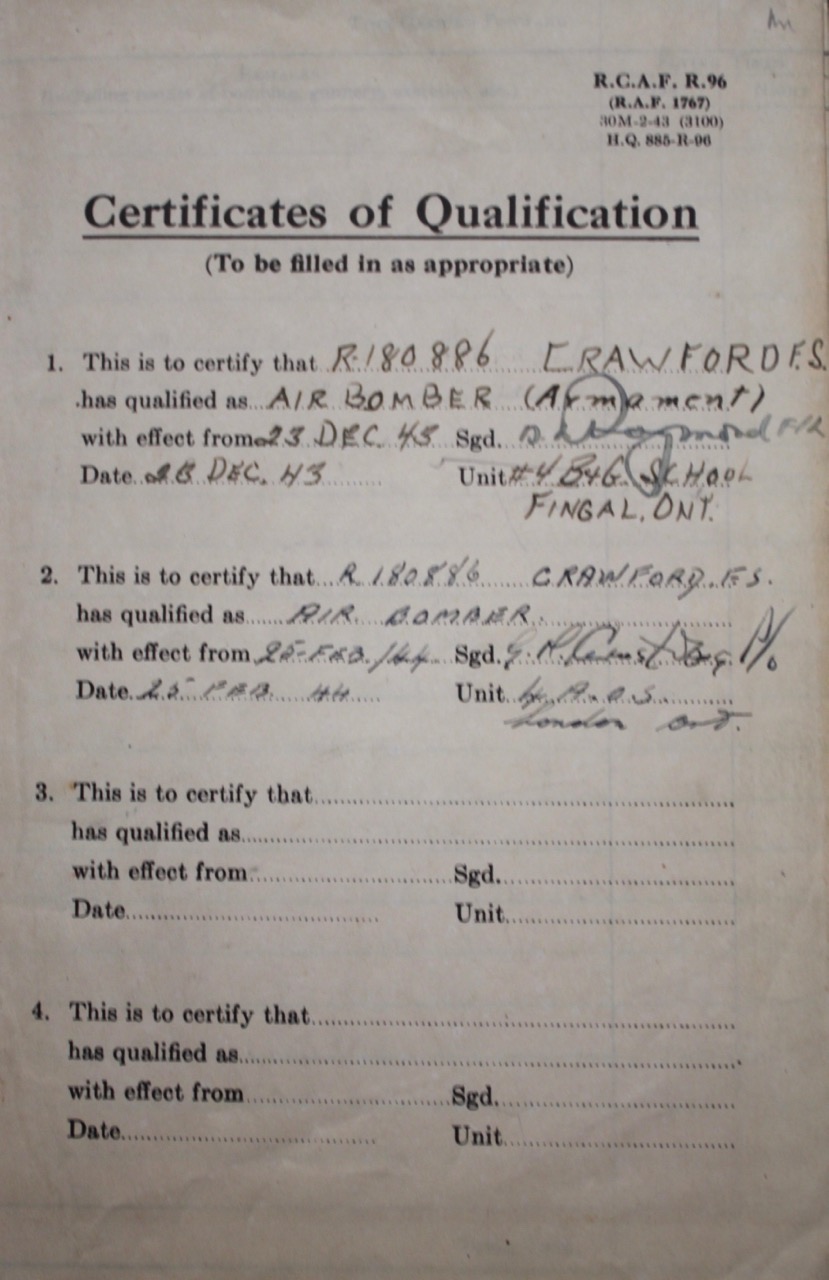 R.C.A.F. R.96
(R.A.F. 1767)
30M-2-43 (3100)
H.Q. 885-R-96
Certificates of Qualification
(To be filled in as appropriate)
1. This is to certify that R.180886 CRAWFORD F.S.
has qualified as AIR BOMBER (Armament)
with effect from 23 DEC. 43 Sgd.
Date DEC. 43 Unit #4 B+G. SCHOOL
FINGAL, ONT.
2. This is to certify that R 180886 CRAWFORD. F.S.
has qualified as AIR BOMBER.
with effect from 25-FEB./44 Sgd.
Date 25 FEB. 44 Unit 4 A.O.S.
London Ont.
3. This is to certify that
has qualified as
with effect from Sgd.
Date Unit
4. This is to certify that
has qualified as
with effect from Sgd.
Date Unit